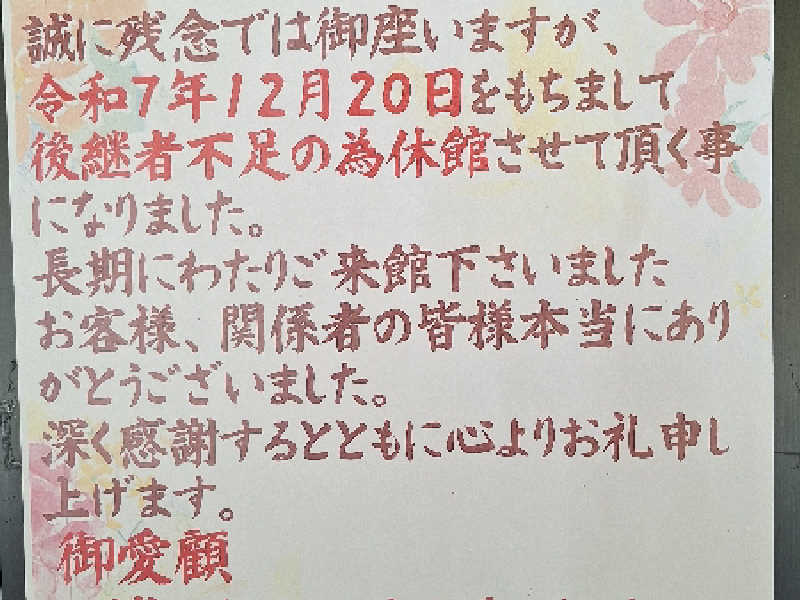 誠に残念では御座いますが、
令和7年12月20日をもちまして
後継者不足の為休館させて頂く事
になりました。
長期にわたりご来館下さいました
お客様、関係者の皆様本当にあり
がとうございました。
深く感謝するとともに心よりお礼申し
上げます。
御愛顧